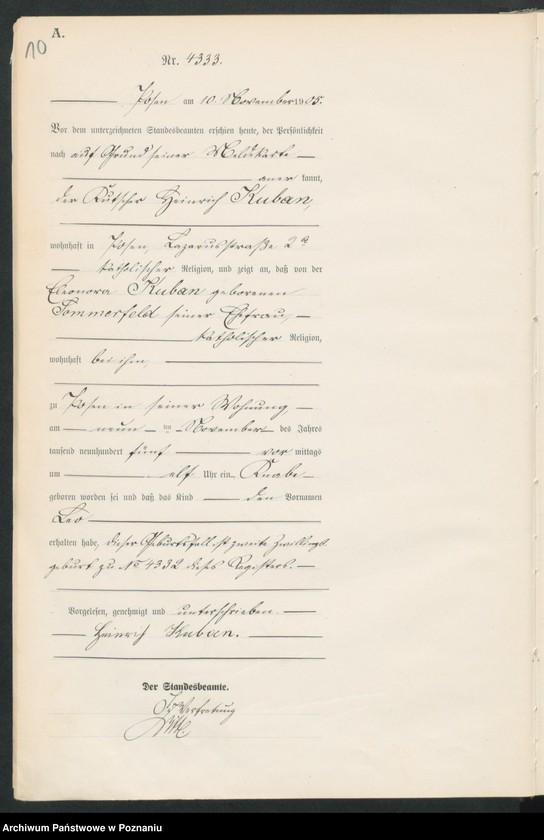 A.
10
Nr. 4333.
Posen am 10 November 1905.
Vor dem unterzeichneten Standesbeamten erschien heute, der Persönlichkeit
nach auf Grund seiner Meldekarte
aner kannt,
der Kutscher Heinrich Kuban,
wohnhaft in Posen, Lazarusstraße 2a
katholischer Religion, und zeigt an, daß von der
Eleonora Kuban geborenen
Sommerfeld seiner Ehefrau,
katholischer Religion,
wohnhaft bei ihm,
zu Posen in seiner Wohnung
am neun ten November des Jahres
tausend neunhundert fünf vor mittags
um elf Uhr ein Knabe
geboren worden sei und daß das Kind den Vornamen
Leo
erhalten habe, dieser Geburtsfall ist zweite Zwillings
geburt zu No 4332 dieses Registers.
Vorgelesen, genehmigt und unterschrieben
Heinrich Kuban.
Der Standesbeamte.
In Vertretung
Archiwum Państwowe w Poznaniu